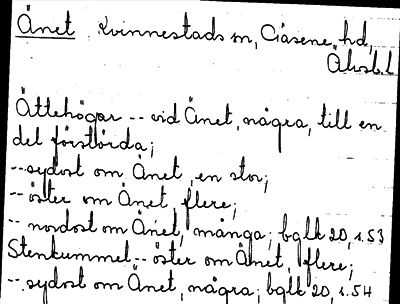 Änet Kvinnestads sn, Gäsene hd,
Älvsb. l
Ättehögar -- vid Änet, några, till en
del förstörda;
-- sydost om Änet, en stor;
-- öster om Änet, flere;
-- nordost om Änet, många; bglk 20, s. 53
Stenkummel -- öster om Änet, flere;
-- sydost om Änet, några; bglk 20, s. 54